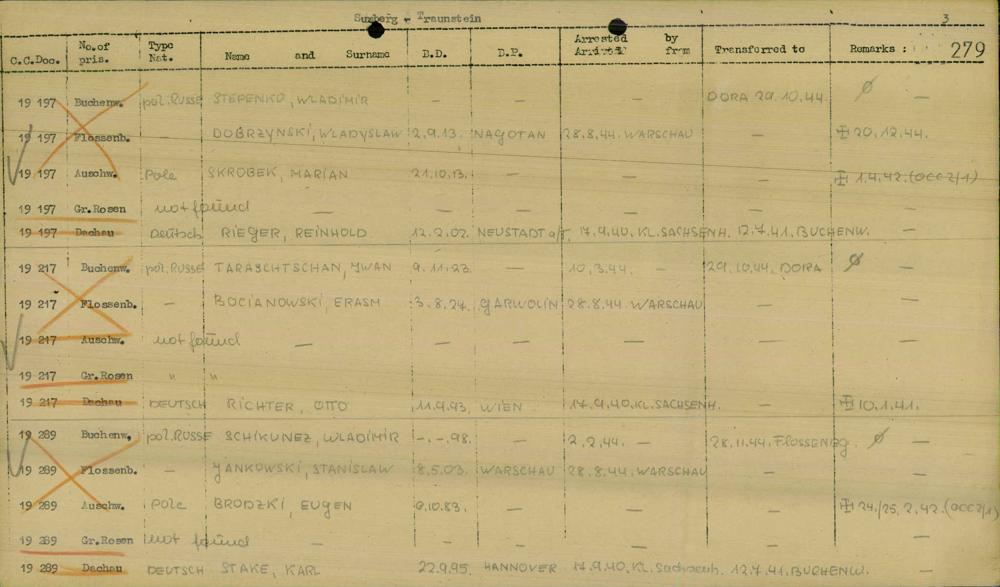 Surberg - Traunstein 3
C.C.Doc. No.of pris. Type Nat. Name and Surname B.D. B.P. Arrested Arrived by from Transferred to Remarks : 279
19 197 Buchenw. pol.RUSSE STEPENKO, WLADIMIR — — DORA 29.10.44. ∅ —
19 197 Flossenb. — DOBRZYNSKI, WLADYSLAW 2.9.13. NAGOTAN 28.8.44. WARSCHAU — 20.12.44.
19 197 Auschw. Pole SKROBEK, MARIAN 21.10.13. — — — 1.4.42. (OCC2/1)
19 197 Gr.Rosen not found — — — —
19 197 Dachau Deutsch RIEGER, REINHOLD 12.2.02. NEUSTADT a/T. 17.9.40. KL.SACHSENH. 12.7.41. BUCHENW. —
19 217 Buchenw. pol.RUSSE TARASCHTSCHAN, IWAN 9.11.23. — 10.3.44. — 29.10.44. DORA ∅ —
19 217 Flossenb. — BOCIANOWSKI, ERASM 3.8.24. GARWOLIN 28.8.44 WARSCHAU — —
19 217 Auschw. not found — — — —
19 217 Gr.Rosen " "
19 217 Dachau DEUTSCH RICHTER, OTTO 11.9.93. WIEN 17.9.40. KL.SACHSENH. — 10.1.41.
19 289 Buchenw. pol.RUSSE SCHIKUNEZ, WLADIMIR -.-.98. — 2.2.44. — 28.11.44. FLOSSENBG. ∅ —
19 289 Flossenb. — JANKOWSKI, STANISLAW 8.5.03. WARSCHAU 28.8.44. WARSCHAU — —
19 289 Auschw. Pole BRODZKI, EUGEN 9.10.83. — — — 24./25.2.42. (OCC2/1)
19 289 Gr.Rosen not found — — — —
19 289 Dachau DEUTSCH STAKE, KARL 22.9.95. HANNOVER 17.9.40. KL.Sachsenh. 12.7.41. BUCHENW. —